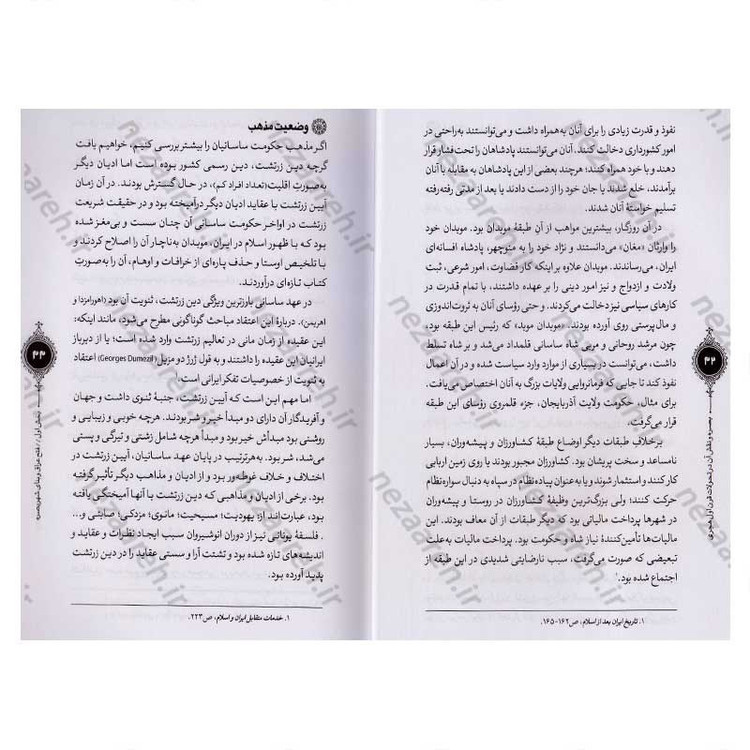 نفوذ و قدرت زیادی را برای آنان به‌همراه داشت و می‌توانستند به‌راحتی در
امور کشورداری دخالت کنند. آنان می‌توانستند پادشاهان را تحت فشار قرار
دهند و با خود همراه کنند؛ هرچند بعضی از این پادشاهان به مقابله با آنان
برآمدند، خلع شدند یا جان خود را از دست دادند یا بعد از مدتی رفته‌رفته
تسلیم خواستهٔ آنان شدند.
در آن روزگار، بیشترین مواهب از آنِ طبقهٔ موبدان بود. موبدان خود
را وارثان «مغان» می‌دانستند و نژاد خود را به منوچهر، پادشاه افسانه‌ای
ایران، می‌رساندند. موبدان علاوه بر اینکه کار قضاوت، امور شرعی، ثبت
ولادت و ازدواج و نیز امور دینی را بر عهده داشتند، با تمام قدرت در
کارهای سیاسی نیز دخالت می‌کردند. و حتی رؤسای آنان به ثروت‌اندوزی
و مال‌پرستی روی آورده بودند. «موبدان موبد» که رئیس این طبقه بود،
چون مرشد روحانی و مربی شاه ساسانی قلمداد می‌شد و بر شاه تسلط
داشت، می‌توانست در بسیاری از موارد وارد سیاست شده و در آن اعمال
نفوذ کند تا جایی که فرمانروایی ولایات بزرگ به آنان اختصاص می‌یافت.
برای مثال، حکومت ولایت آذربایجان، جزء قلمروی رؤسای طبقهٔ مغ
قرار می‌گرفت.
برخلاف طبقات دیگر اوضاع طبقهٔ کشاورزان و پیشه‌وران، بسیار
نامساعد و سخت پریشان بود. کشاورزان مجبور بودند یا روی زمین اربابی
کار کنند و استثمار شوند و یا به‌عنوان پیاده‌نظام در سپاه به دنبال سواره‌نظام
حرکت کنند؛ ولی بزرگ‌ترین وظیفهٔ کشاورزان در روستا و پیشه‌وران
در شهرها پرداخت مالیاتی بود که دیگر طبقات از آن معاف بودند. این
مالیات‌ها تأمین‌کنندهٔ نیاز شاه و حکومت بود. پرداخت مالیات به‌علت
تبعیضی که صورت می‌گرفت، سبب نارضایتی شدیدی در این طبقه از
اجتماع شده بود.۱
۱. تاریخ ایران بعد از اسلام، ص۱۶۲-۱۶۵.
۳۲
بصره و نقش آن در تحولات قرن اول هجری
وضعیت مذهب
اگر مذهب حکومت ساسانیان را بیشتر بررسی کنیم، خواهیم یافت
گرچه دین زرتشت، دین رسمی کشور بوده است اما ادیان دیگر
به‌صورت اقلیت(تعداد افراد کم)، در حال گسترش بودند. در آن زمان
آیین زرتشت با عقاید ادیان دیگر درآمیخته بود و در حقیقت شریعت
زرتشت در اواخر حکومت ساسانی آن چنان سست و بی‌مغز شده
بود که با ظهور اسلام در ایران، موبدان به‌ناچار آن را اصلاح کردند و
با تلخیص اوستا و حذف پاره‌ای از خرافات و اوهام، آن را به‌صورت
کتاب تازه‌ای درآوردند.
در عهد ساسانی بارزترین ویژگی دین زرتشت، ثنویت آن بود (اهورامزدا و
اهریمن). دربارهٔ این اعتقاد مباحث گوناگونی مطرح می‌شود، مانند اینکه:
این عقیده از زمان مانی در تعالیم زرتشت وارد شده است؛ یا از دیرباز
ایرانیان این عقیده را داشتند و به قول ژرژ دو مزیل (Georges Dumezil) اعتقاد
به ثنویت از خصوصیات تفکر ایرانی است.
اما مهم این است که آیین زرتشت، جنبهٔ ثنوی داشت و جهان
و آفریدگار آن دارای دو مبدأ خیر و شر بودند. هرچه خوبی و زیبایی و
روشنی بود مبدأش خیر بود و مبدأ هرچه شامل زشتی و تیرگی و پستی
می‌شد، شر بود. به‌هرترتیب در پایان عهد ساسانی، آیین زرتشت در
اختلاف و خلاف غوطه‌ور بود و از ادیان و مذاهب دیگر تأثیر گرفته
بود. برخی از ادیان و مذاهبی که دین زرتشت با آنها آمیختگی یافته
بود، عبارت‌اند از: یهودیت؛ مسیحیت؛ مانوی، مزدکی، صابئی و...
. فلسفهٔ یونانی نیز از دوران انوشیروان سبب ایجاد نظرات و عقاید و
اندیشه‌های تازه شده بود و تشتت آرا و سستی عقاید را در دین زرتشت
پدید آورده بود.
۱. خدمات متقابل ایران و اسلام، ص۲۲۳.
۳۳
بخش اول // فتح عراق و بنای شهر بصره
nezaareh.ir